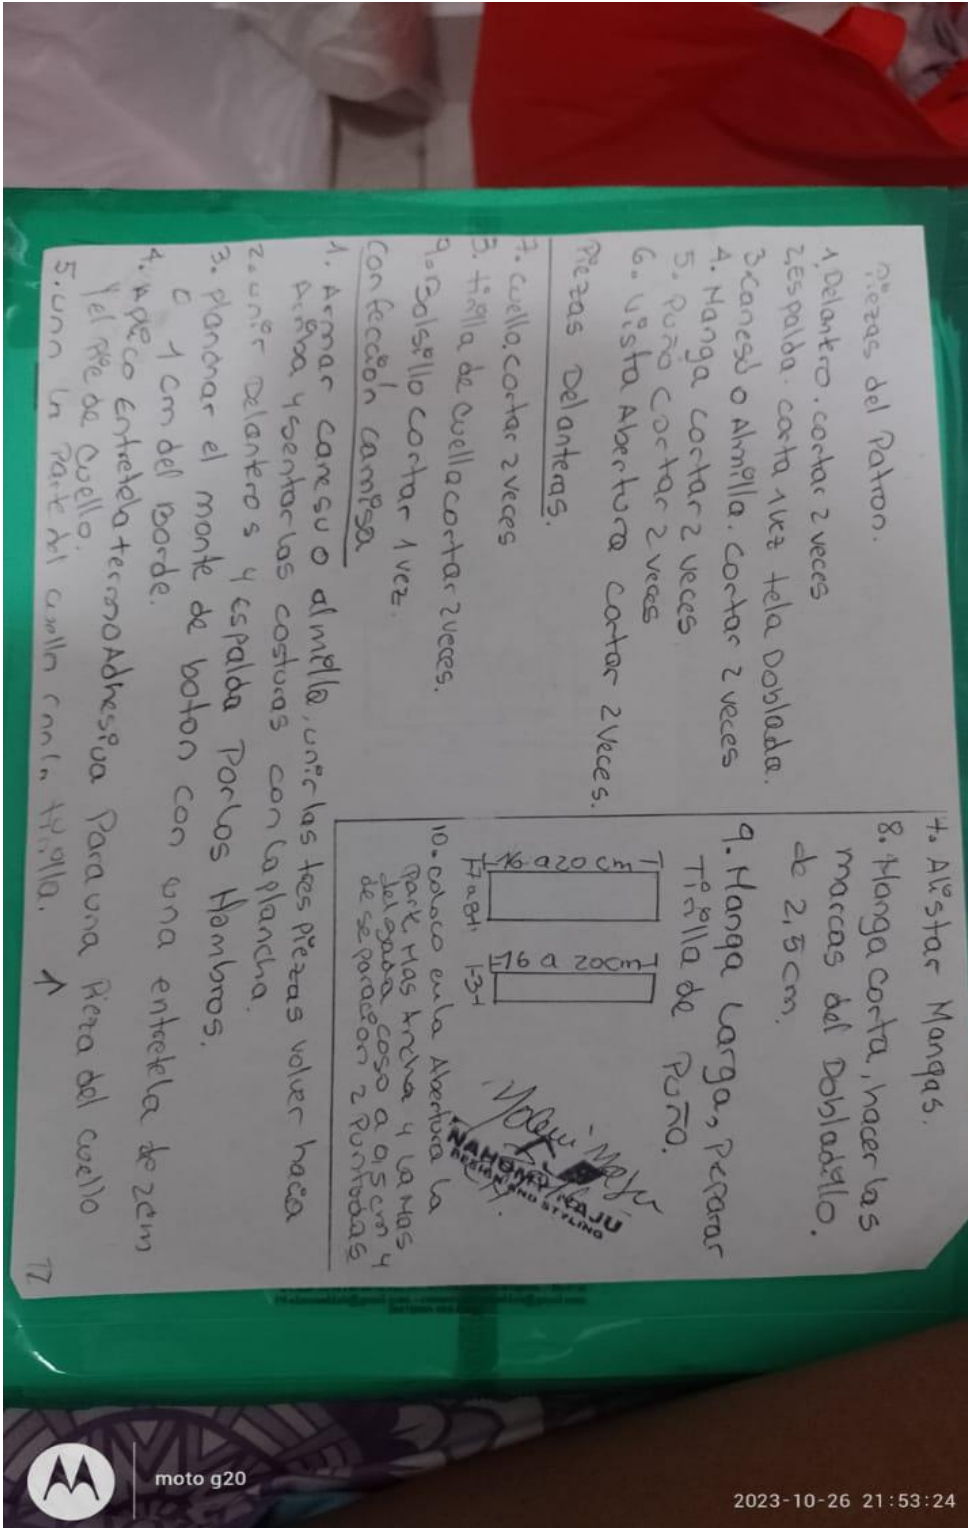 Piezas del Patron.
1. Delantero. cortar 2 veces
2. Espalda. corta 1 vez tela Doblada.
3. Canesu o Almilla. Cortar 2 veces
4. Manga cortar 2 veces
5. Puño cortar 2 veces
6. Vista Abertura cortar 2 veces.
Piezas Delanteras.
7. cuello. cortar 2 veces
8. tirilla de cuello cortar 2 veces.
9. Bolsillo cortar 1 vez.
Confección camisa
1. Armar canesu o almilla, unir las tres piezas volver hacia
Arriba y sentar las costuras con la plancha.
2. unir Delanteros y espalda Por los Hombros.
3. planchar el monte de boton con una entretela de 2cm
o 1 cm del Borde.
4. Aplico Entretela termoAdhesiva Para una Pieza del cuello
y el Pie de cuello.
5. unir la Parte del cuello con la tirilla.
7. Alistar Mangas.
8. Manga corta, hacer las
marcas del Dobladillo.
de 2,5 cm.
9. Manga Larga, Perparar
Tirilla de Puño.
16 a 20 cm
7 a 8
16 a 20cm
3
10. coloco en la Abertura la
Parte Mas Ancha y la Mas
delgada coso a 0,5 cm y
de separacion 2 Puntadas
NAHOMY NAJU
DESIGN AND STYLING
12
moto g20
2023-10-26 21:53:24